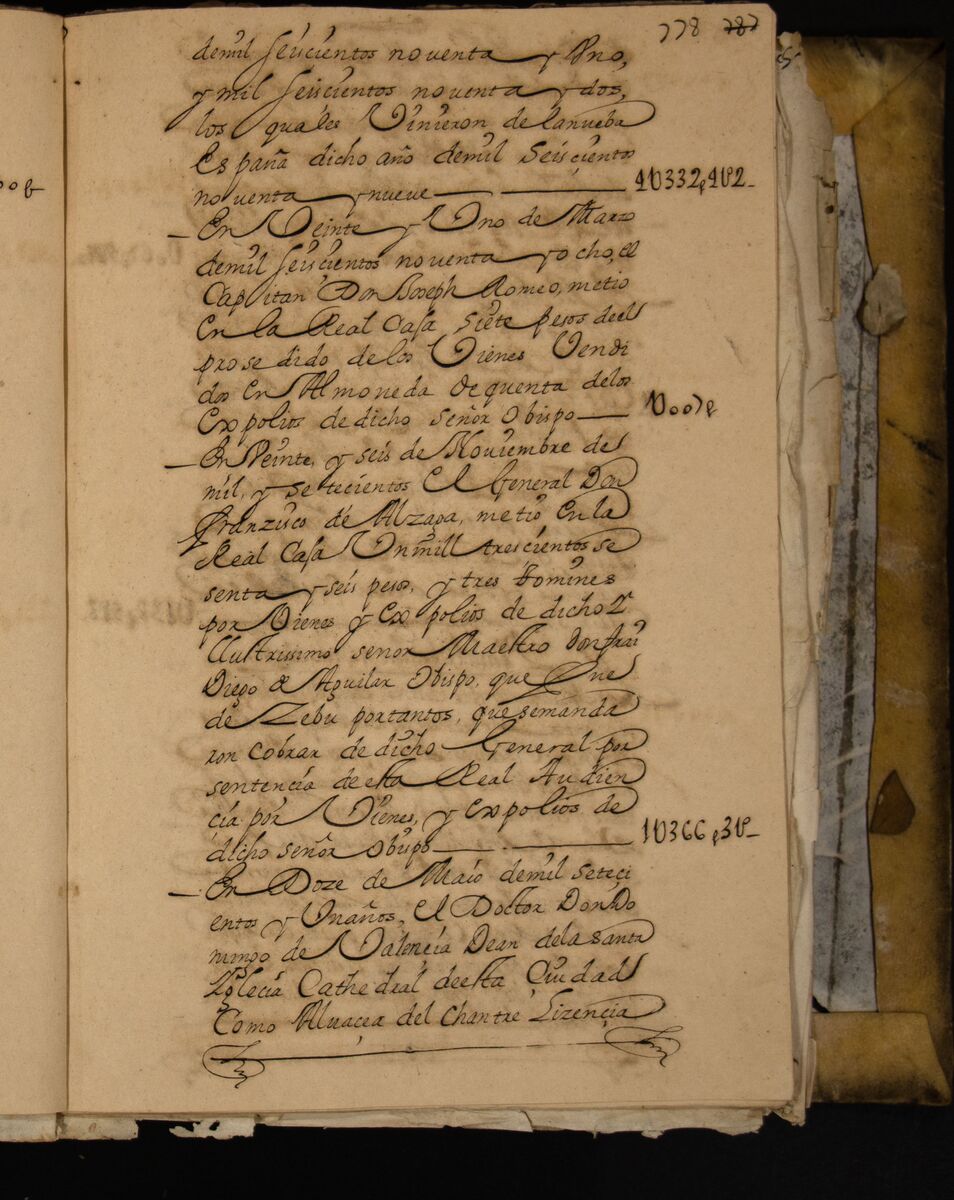 778 787
demil seiscientos noventa y Vno,
y mil seiscientos noventa y dos,
los quales Vinieron de lanueba
España dicho año demil seiscientos
noventa y nueve — 1U332p,4
En Veinte y Uno de Marzo
demil seiscientos noventa y ocho, el
Capitan Don Joseph Romeo, metio
En la Real Caxa siete pesos deel
prosedido delos Vienes Vendi
dos En Almoneda de quenta delos
Expolios de dicho señor Obispo — U007p
En Veinte, y seis de Noviembre de
mil, y setecientos El General Don
Franzisco de Alzaga, metio En la
Real Caxa Un mill trescientos se
senta y seis pesos, y tres tomines
por Vienes y Expolios de dicho
Illustrissimo señor Maestro Don frai
Diego de Aguilar Obispo, que fue
de Zebu portantos, que semanda
ron cobrar de dicho General por
sentencia de esta Real Audien
cia por Vienes, y expolios de
dicho señor Obispo — 1U366p,3
En Doze de Maio demil seteci
entos y Un años, El Doctor Don Do
mingo de Valencia Dean dela santa
Iglecia Cathedral deesta Ciudad
Como Alvacea del Chantre Lizencia